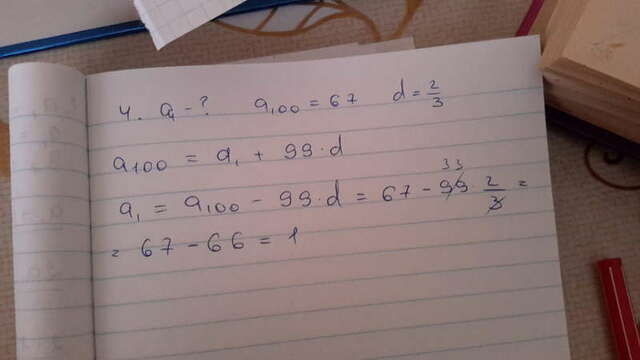 4. a₁ - ? a₁₀₀ = 67 d = 2/3
a₁₀₀ = a₁ + 99·d
a₁ = a₁₀₀ - 99·d = 67 - 99 33 · 2/3 =
= 67 - 66 = 1